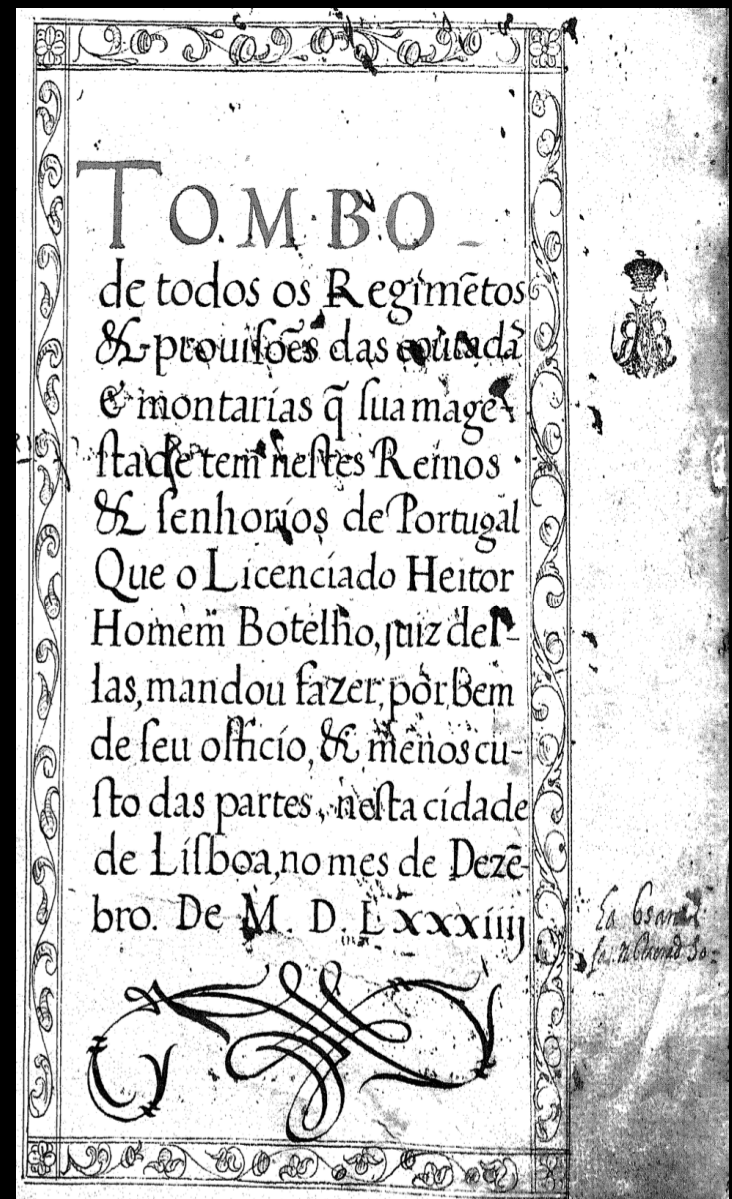 TOMBO
de todos os Regimẽtos
& prouisoẽs das coutadã
& montarias q̃ sua mage-
stade tem nestes Reinos
& senhorios de Portugal
Que o Licenciado Heitor
Homem Botelho, juiz del-
las, mandou fazer, por bem
de seu officio, & menos cu-
sto das partes, nesta cidade
de Lisboa, no mes de Dezẽ-
bro. De M. D. Lxxxiiij